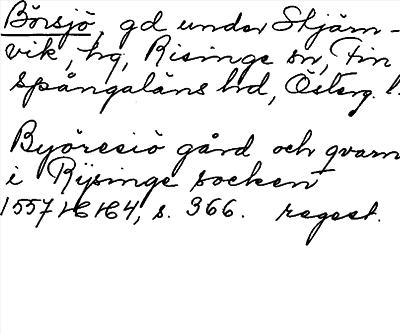 Börsjö, gd under Stjärn-
vik, hg, Risinge sn, Fin
spångaläns hd, Österg. l.
Byöresiö gård och qvarn
i Rijsinge socken
1557 16/4, s. 366. regest.